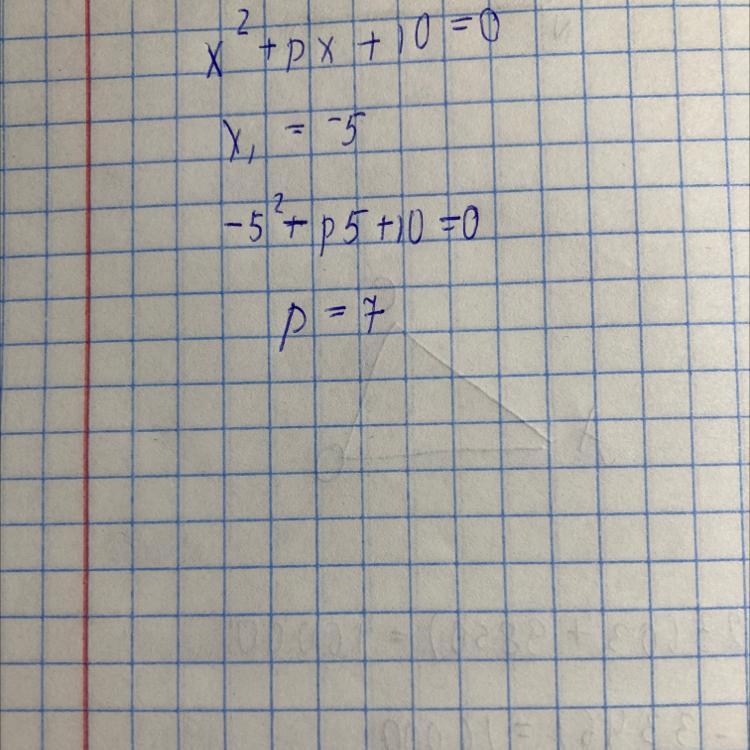 x² + px + 10 = 0
x₁ = -5
-5² + p5 + 10 = 0
p = 7